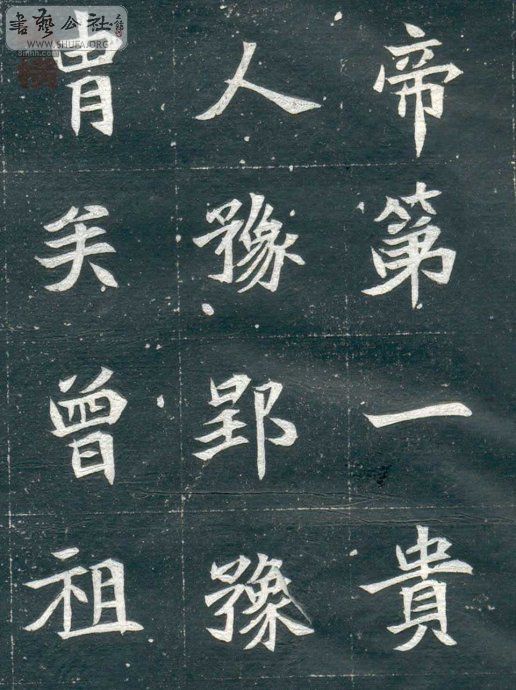 帝第一貴
人豫郢豫
胄矣曾祖
書藝公社
WWW.SHUFA.ORG